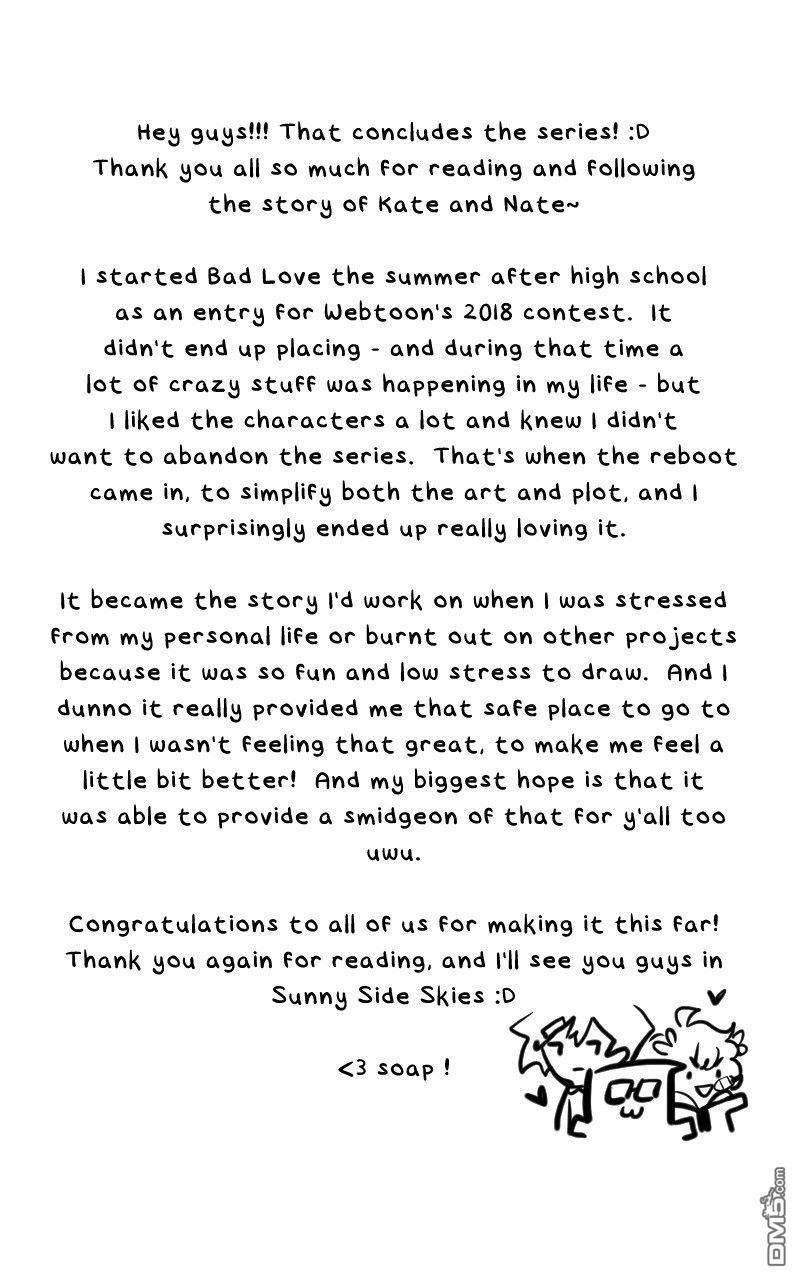 Hey guys!!! That concludes the series! :D
Thank you all so much for reading and following
the story of Kate and Nate~
I started Bad Love the summer after high school
as an entry for Webtoon's 2018 contest. It
didn't end up placing - and during that time a
lot of crazy stuff was happening in my life - but
I liked the characters a lot and knew I didn't
want to abandon the series. That's when the reboot
came in, to simplify both the art and plot, and I
surprisingly ended up really loving it.
It became the story I'd work on when I was stressed
from my personal life or burnt out on other projects
because it was so fun and low stress to draw. And I
dunno it really provided me that safe place to go to
when I wasn't feeling that great, to make me feel a
little bit better! And my biggest hope is that it
was able to provide a smidgeon of that for y'all too
uwu.
Congratulations to all of us for making it this far!
Thank you again for reading, and I'll see you guys in
Sunny Side Skies :D
<3 soap !
DM5.com